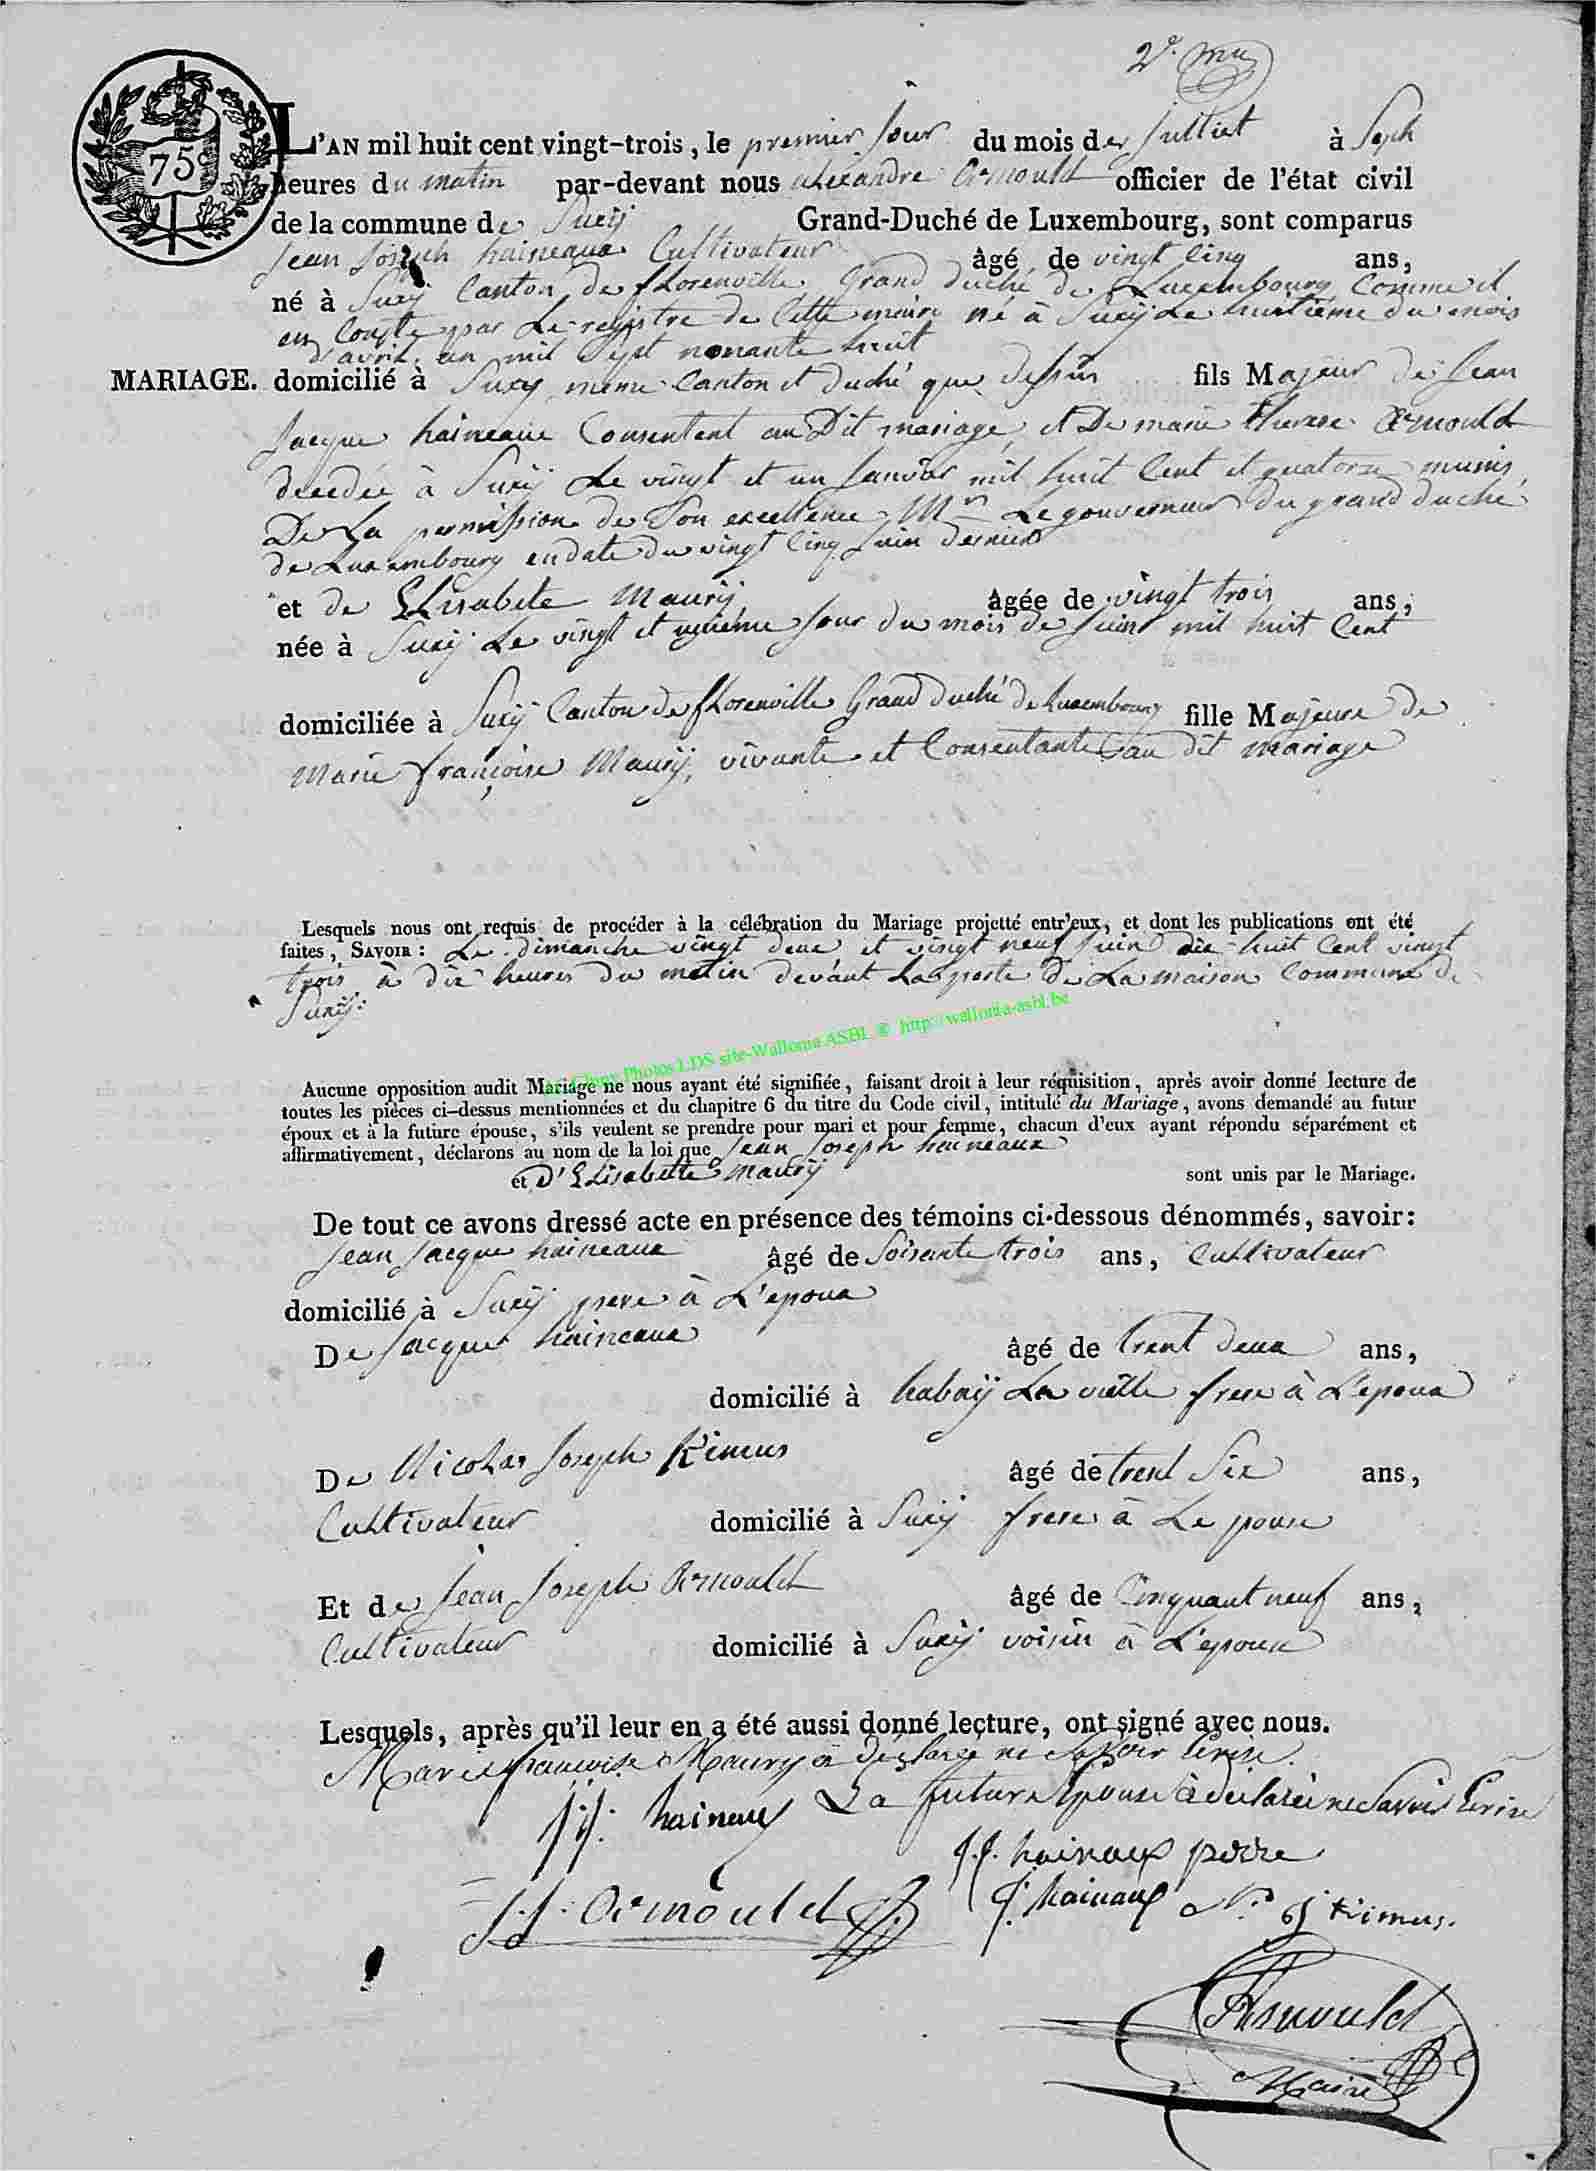 2e.
75c
L'AN mil huit cent vingt-trois, le premier jour du mois de Julliet à Sept
heures du matin par-devant nous alexandre Arnould officier de l'état civil
de la commune de Suxÿ Grand-Duché de Luxembourg, sont comparus
Jean Joseph haineaux Cultivateur âgé de vingt Cinq ans,
né à Suxÿ Canton de fLorenville Grand duché de Luxembourg Comme il
en Conste par Le registre de Cette mairie né à Suxÿ Le huitième du mois
d'avril an mil Sept nonante huit
MARIAGE. domicilié à Suxy même Canton et duché que dessus fils Majeur de Jean
Jacque haineaux Consentent au Dit mariage, et De marie therese Arnould
decedée à Suxÿ Le vingt et un Janvier mil huit Cent et quatorze munis
De La permission de Son excellence Mr Le gouverneur du grand duché
de Luxembourg en date du vingt Cinq Juin dernier
et de ELisabete Maurÿ âgée de vingt trois ans,
née à Suxÿ Le vingt et unieme Jour du mois de Juin mil huit Cent
domiciliée à Suxÿ Canton de fLorenville Grand duché de Luxembourg fille Majeure de
Marie françoise Maurÿ, vivante et Consentante au dit mariage
Lesquels nous ont requis de procéder à la célébration du Mariage projetté entr'eux, et dont les publications ont été
faites, SAVOIR: Le dimanche vingt deux et vingt neuf Juin dix huit Cent vingt
trois à dix heures du matin devant La porte de La maison Commune de
Suxÿ:
Cluny Photos LDS site-Wallonia ASBL © http://wallonia-asbl.be
Aucune opposition audit Mariage ne nous ayant été signifiée, faisant droit à leur réquisition, après avoir donné lecture de
toutes les pièces ci-dessus mentionnées et du chapitre 6 du titre du Code civil, intitulé du Mariage, avons demandé au futur
époux et à la future épouse, s'ils veulent se prendre pour mari et pour femme, chacun d'eux ayant répondu séparément et
affirmativement, déclarons au nom de la loi que Jean Joseph haineaux
et D'ELisabette maurÿ sont unis par le Mariage.
De tout ce avons dressé acte en présence des témoins ci-dessous dénommés, savoir:
Jean Jacque haineaux âgé de Soixante trois ans, Cultivateur
domicilié à Suxÿ pere à L'epoux
De Jacque haineaux âgé de trent deux ans,
domicilié à habaÿ La vielle frere à L'epoux
De NicoLas Joseph Kimus âgé de trent Six ans,
CuLtivateur domicilié à Suxÿ frere à Le pouse
Et de Jean Joseph Arnould âgé de Cinquant neuf ans,
Cultivateur domicilié à Suxÿ voisin à L'epoux
Lesquels, après qu'il leur en a été aussi donné lecture, ont signé avec nous.
Marie francoise Maury a déclaré ne Savoir Ecrire
j:j: hainaux La future Epouse à déclaré ne Savoir Ecrire
J.J. hainaux perre
J:J: Arnould J: hainaux N: J Kimus.
Arnould
Maire